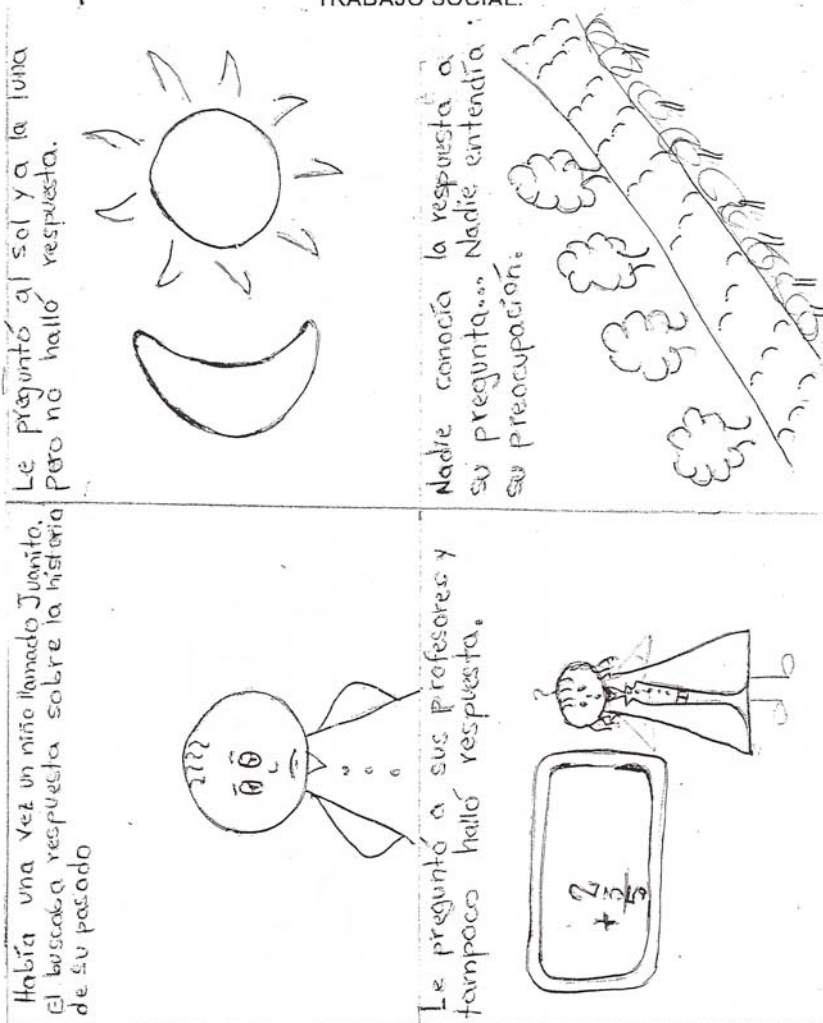 TRABAJO SOCIAL.
Había una vez un niño llamado Juanito.
El buscaba respuesta sobre la historia
de su pasado
????
Le preguntó al sol y a la luna
pero no halló respuesta.
Le preguntó a sus profesores y
tampoco halló respuesta.
2
+ 3
5
?
Nadie conocía la respuesta a
su pregunta... Nadie entendía
su preocupación.